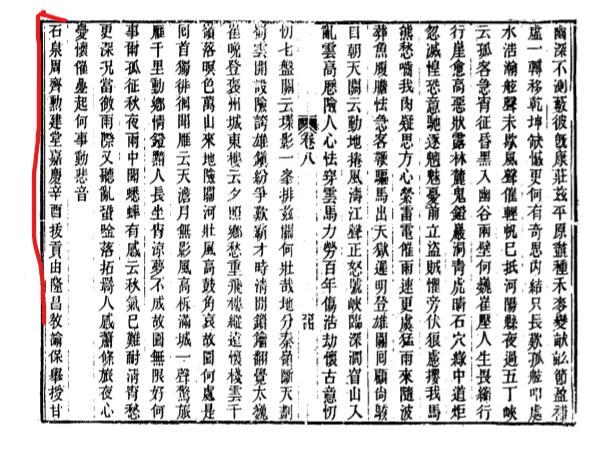 幽深不測蔽彼旣康莊茲平原盡種禾麥變畝訟節盈
虛一轉移乾坤缺憾更何有奇思內結只長歎孤舷叩處
水浩瀚舷聲未歇風聲催輕帆已抵河陽縣夜過五丁峽
云孤客急宵征昏黑入幽谷兩壁何巍崔壓人生畏縮行
行崖愈高惡狀露林麓鬼鐙巖洞青虎睛石穴綠中道炬
忽滅惶恐意馳逐魑魅憂前立盜賊懼旁伏狠虐攖我馬
熊愁嚙我肉疑思方心縈雷電催雨速更虞猛雨來隨波
葬魚腹膽怯急客鞭驅馬出天獄遲明登雄關回顧尙觳
目朝天關云動地捲風濤江聲正怒號峽臨深澗窅山入
亂雲高歷險人心怯穿雲馬力勞百年傷浩劫懷古意忉
卷八
忉七盤關云環影一峯排茲關何壯哉地分秦嶺斷天劃
蜀雲開設險誇雄鎮紛爭歎霸才時淸閒鎖鑰翻覺太巍
崔晚登褒州城東樓云夕照鄉愁重飛樓縱遠懷棧雲千
嶺落暝色萬山來地險關河壯風高鼓角哀故園何處是
回首獨徘徊聞雁云天澹月無影風高柝滿城一聲驚旅
雁千里動鄉情鐙黯人長坐宵涼夢不成故園無限好何
事爾孤征秋夜雨中聞蟋蟀有感云秋氣已難耐淸宵愁
更深況當飲雨際又聽亂蛩唫落拓羈人感蕭條旅夜心
憂懷催曡起何事動悲音
石泉周齊勳建堂嘉慶辛酉拔貢由隆昌敎諭保舉授甘